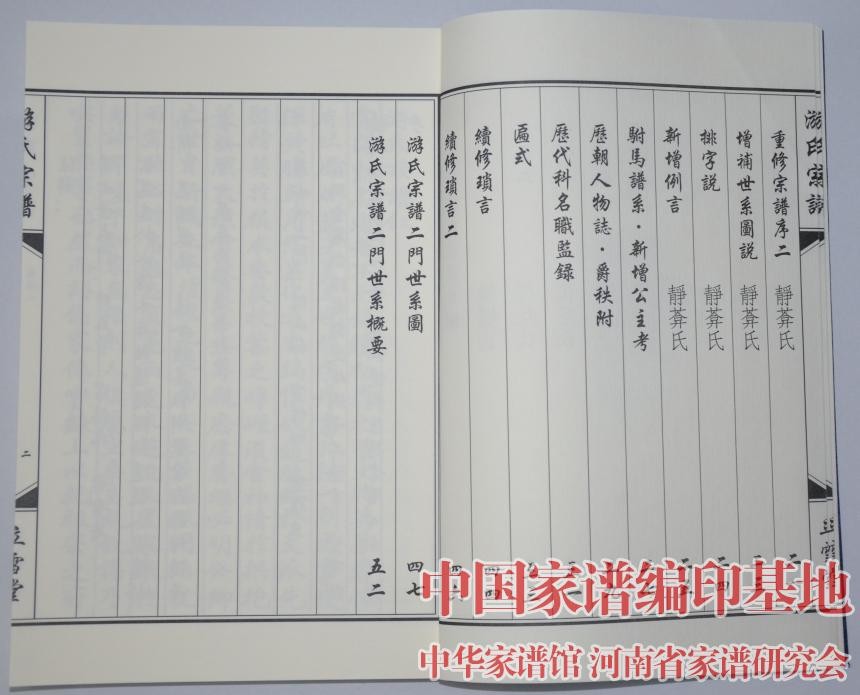 重修宗譜序二 靜葊氏
增補世系圖說 靜葊氏 二三
排字說 靜葊氏 二四
新增例言 靜葊氏 二五
駙馬譜系·新增公主考
歷朝人物誌·爵秩附
歷代科名職監錄
匾式
續修瑣言 四四
續修瑣言二
游氏宗譜二門世系圖 四七
游氏宗譜二門世系概要 五二
游氏宗譜
二
立雪堂
中国家谱编印基地
中华家谱馆 河南省家谱研究会